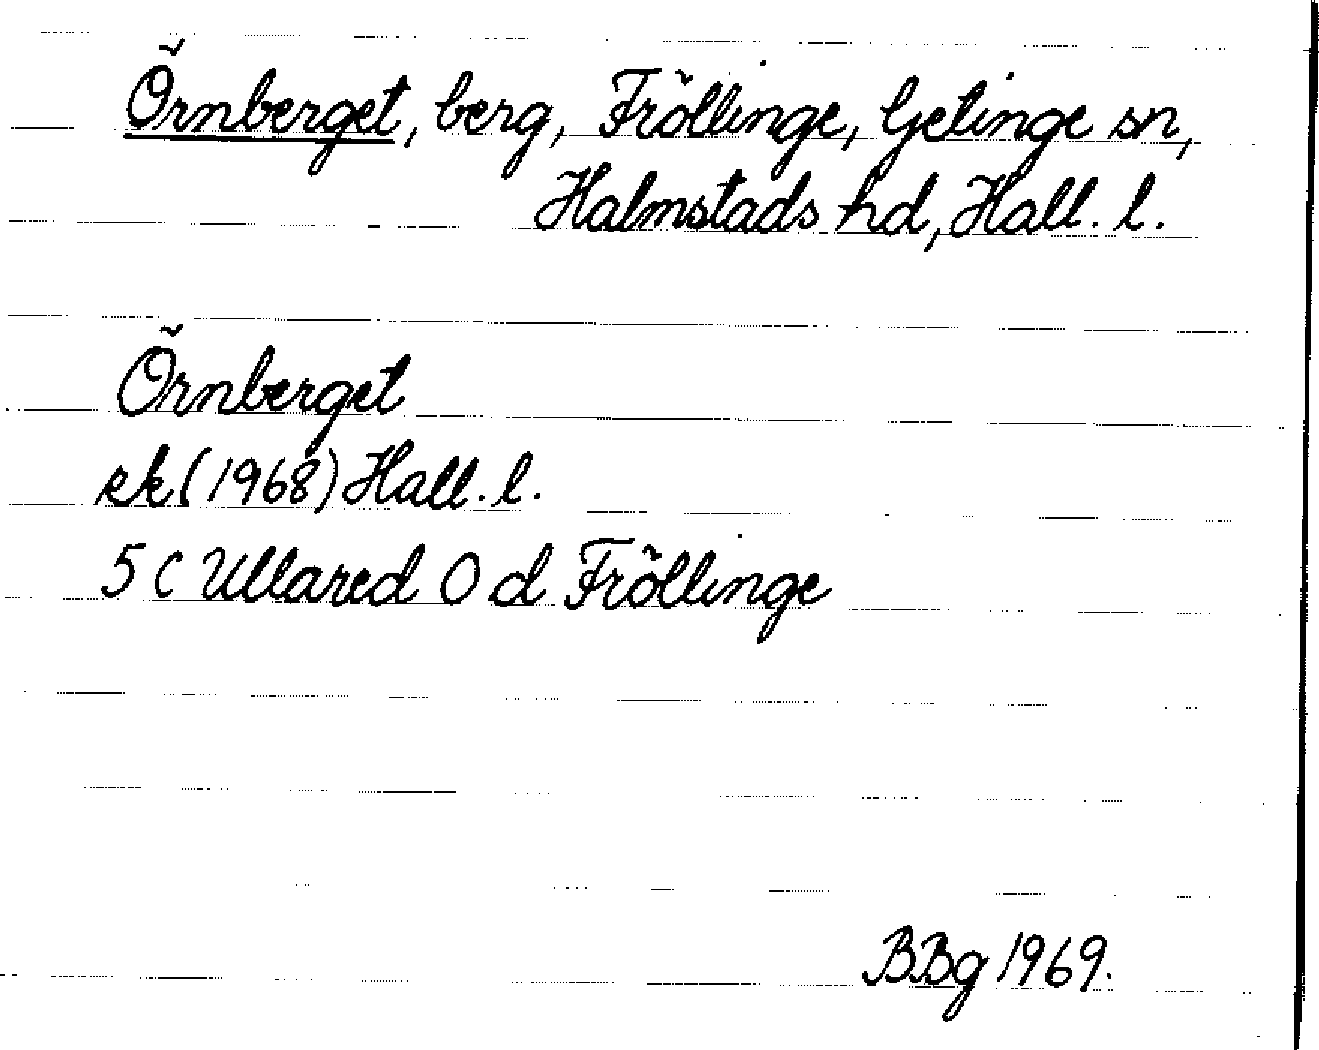 Örnberget, berg, Fröllinge, Getinge sn,
Halmstads hd, Hall. l.
Örnberget
ek (1968) Hall. l.
5 C Ullared 0 d Fröllinge
BBg 1969.